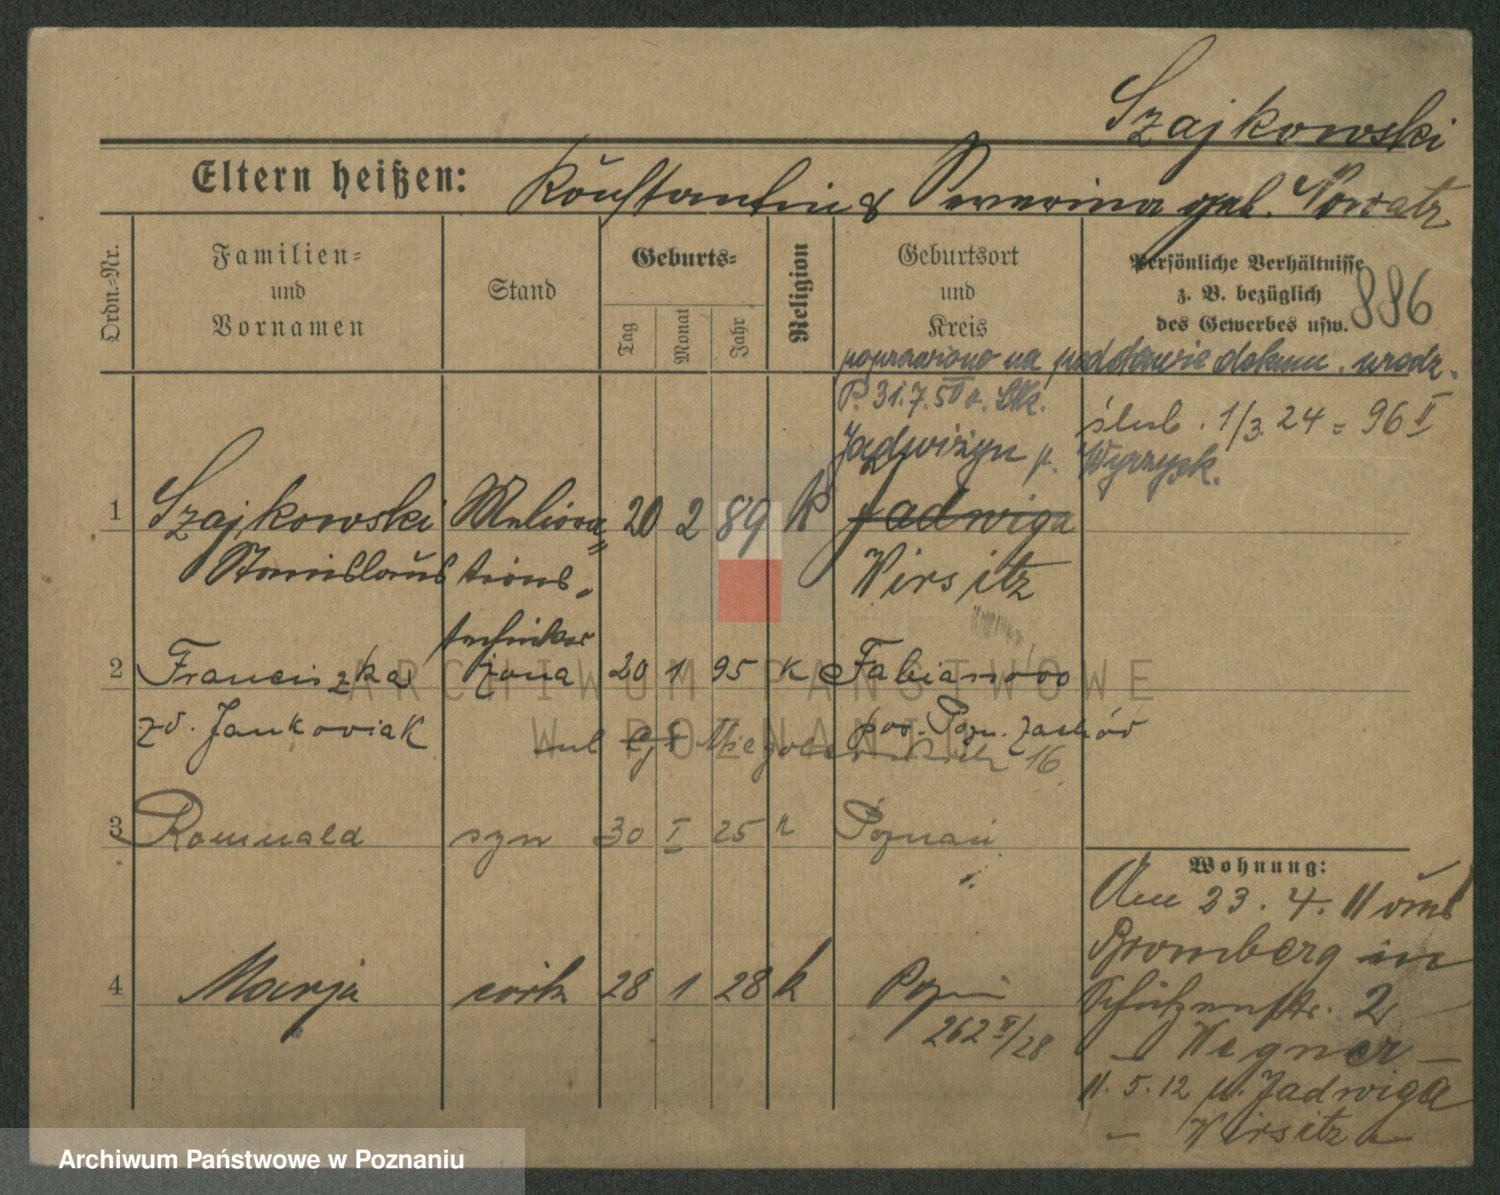 Szajkowski
Eltern heißen: Konstantin & Severina geb. Nowatz
Ordn.-Nr.
Familien-
und
Vornamen
Stand
Geburts-
Tag
Monat
Jahr
Religion
Geburtsort
und
Kreis
Persönliche Verhältnisse
z. B. bezüglich
des Gewerbes usw.
886
poprawiono na podstawie dokum. urodz.
P. 31.7.50 r.
ślub. 1/3 24 = 96 II
Jadwiżyn p. Wyrzysk.
1 Szajkowski Meliora= 20 2 89 K Jadwiga
Stanislaus tions- Wirsitz
techniker
2 Franciszka żona 20 1 95 K Fabianowo
zd. Jankowiak pow. Pozn. Zachód
ul 16
3 Romuald syn 30 I 25 k Poznań
4 Marja córk 28 1 28 k Pozn
262 II/28
Wohnung:
Am 23. 4. 11 von
Bromberg in
Schützenstr. 2
– Wegner –
11. 5. 12 n. Jadwiga
– Wirsitz –
ARCHIWUM PAŃSTWOWE
W POZNANIU
Archiwum Państwowe w Poznaniu